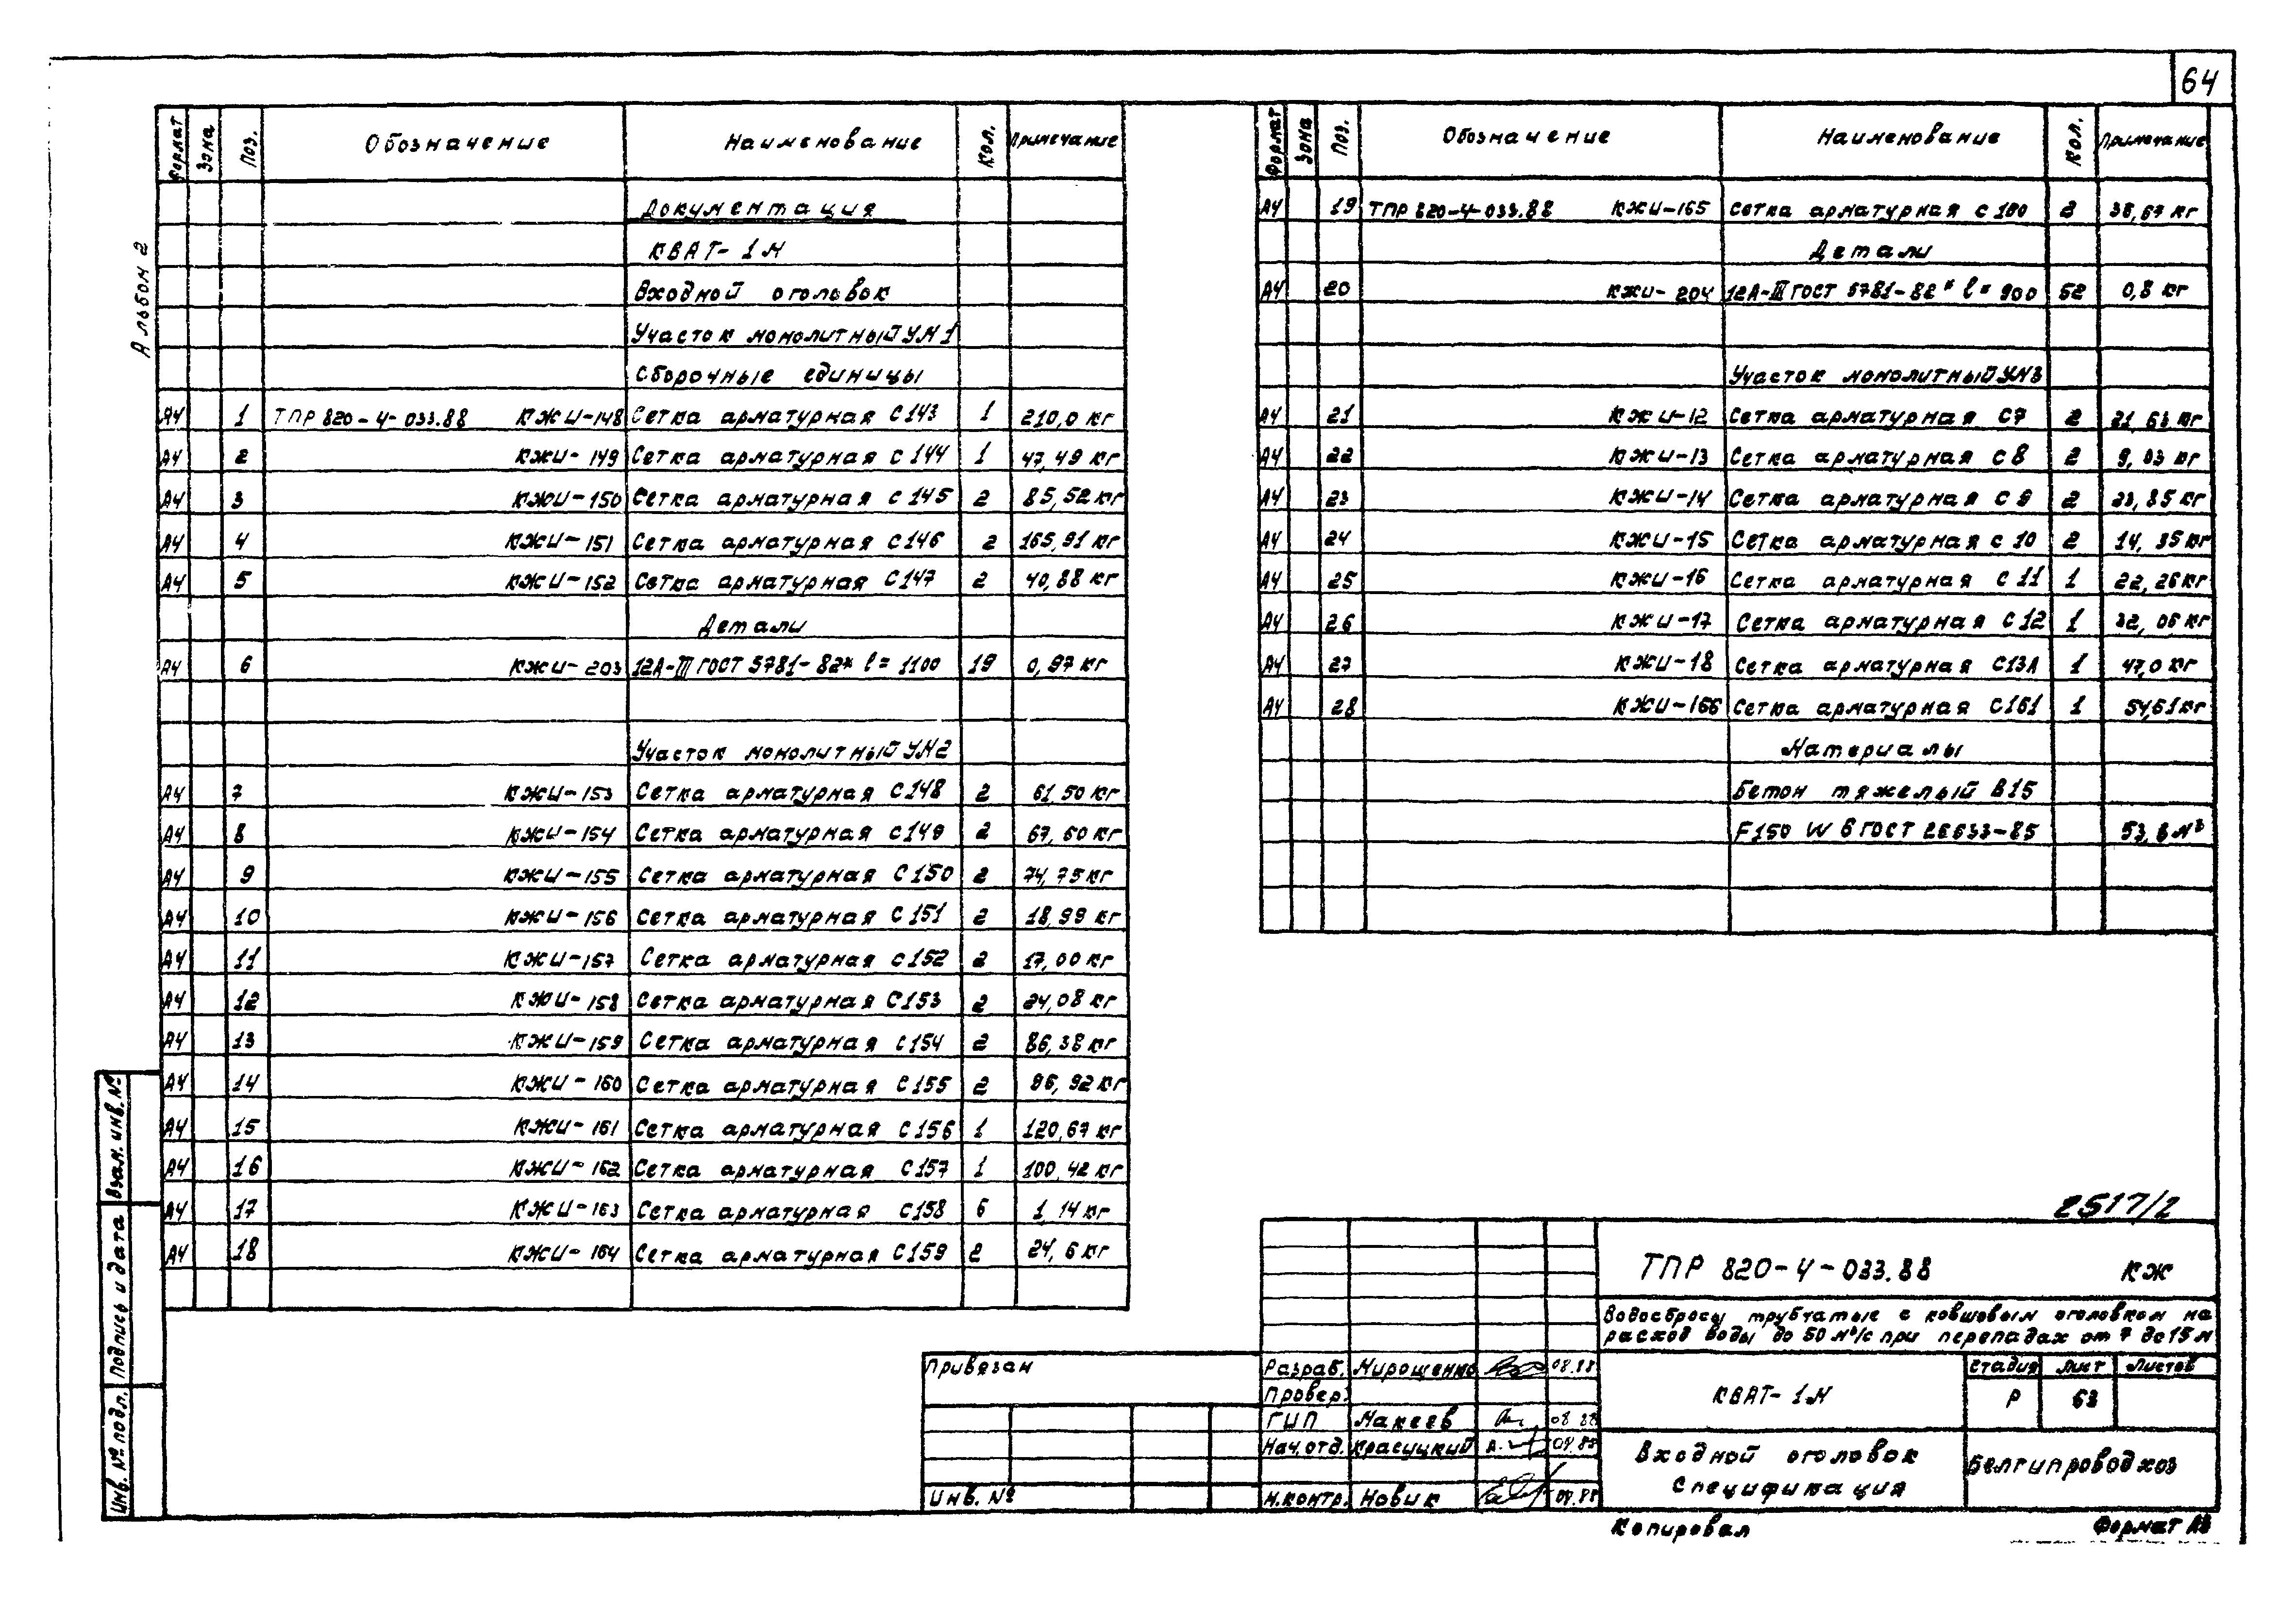 64
Альбом 2
Формат Зона Поз. Обозначение Наименование Кол. Примечание
Документация
КВАТ-1М
Входной оголовок
Участок монолитный УМ1
Сборочные единицы
А4 1 ТПР 820-4-033.88 КЖИ-148 Сетка арматурная С143 1 210,0 кг
А4 2 КЖИ-149 Сетка арматурная С144 1 47,49 кг
А4 3 КЖИ-150 Сетка арматурная С145 2 85,52 кг
А4 4 КЖИ-151 Сетка арматурная С146 2 165,91 кг
А4 5 КЖИ-152 Сетка арматурная С147 2 40,88 кг
Детали
А4 6 КЖИ-203 12А-III ГОСТ 5781-82* l=1100 19 0,97 кг
Участок монолитный УМ2
А4 7 КЖИ-153 Сетка арматурная С148 2 61,50 кг
А4 8 КЖИ-154 Сетка арматурная С149 2 67,60 кг
А4 9 КЖИ-155 Сетка арматурная С150 2 74,75 кг
А4 10 КЖИ-156 Сетка арматурная С151 2 18,99 кг
А4 11 КЖИ-157 Сетка арматурная С152 2 17,00 кг
А4 12 КЖИ-158 Сетка арматурная С153 2 24,08 кг
А4 13 КЖИ-159 Сетка арматурная С154 2 86,38 кг
А4 14 КЖИ-160 Сетка арматурная С155 2 96,92 кг
А4 15 КЖИ-161 Сетка арматурная С156 1 120,67 кг
А4 16 КЖИ-162 Сетка арматурная С157 1 100,42 кг
А4 17 КЖИ-163 Сетка арматурная С158 6 1,14 кг
А4 18 КЖИ-164 Сетка арматурная С159 2 24,6 кг
Формат Зона Поз. Обозначение Наименование Кол. Примечание
А4 19 ТПР 820-4-033.88 КЖИ-165 Сетка арматурная С160 2 38,67 кг
Детали
А4 20 КЖИ-204 12А-III ГОСТ 5781-82* l=900 52 0,8 кг
Участок монолитный УМ3
А4 21 КЖИ-12 Сетка арматурная С7 2 21,63 кг
А4 22 КЖИ-13 Сетка арматурная С8 2 9,03 кг
А4 23 КЖИ-14 Сетка арматурная С9 2 23,85 кг
А4 24 КЖИ-15 Сетка арматурная С10 2 14,35 кг
А4 25 КЖИ-16 Сетка арматурная С11 1 22,26 кг
А4 26 КЖИ-17 Сетка арматурная С12 1 32,06 кг
А4 27 КЖИ-18 Сетка арматурная С13А 1 47,0 кг
А4 28 КЖИ-166 Сетка арматурная С161 1 54,61 кг
Материалы
Бетон тяжелый В15
F150 W6 ГОСТ 26633-85 53,6 м³
2517/2
ТПР 820-4-033.88 КЖ
Водосбросы трубчатые с ковшовым оголовком на
расход воды до 50 м³/с при перепадах от 7 до 15 м
Привязан
Инв. №
Разраб. Мирощенко 08.88
Провер.
ГИП Макеев 08.88
Нач.отд. Красуцкий 09.88
Н.контр. Новик 09.88
КВАТ-1М
Стадия Лист Листов
Р 63
Входной оголовок
Спецификация
Белгипроводхоз
Копировал Формат А3
Взам. инв. №
Подпись и дата
Инв. № подл.